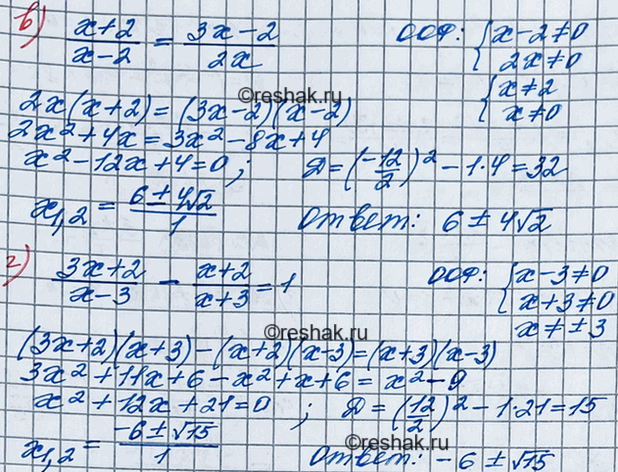 в) (x+2)/(x-2) = (3x-2)/(2x) ООФ: { x-2≠0
2x≠0
©reshak.ru
2x(x+2)=(3x-2)(x-2) { x≠2
x≠0
2x²+4x=3x²-8x+4
x²-12x+4=0; D=(-12/2)²-1·4=32
x₁,₂ = (6±4√2)/1 Ответ: 6±4√2
г) (3x+2)/(x-3) - (x+2)/(x+3) = 1 ООФ: { x-3≠0
x+3≠0
x≠±3
©reshak.ru
(3x+2)(x+3)-(x+2)(x-3)=(x+3)(x-3)
3x²+11x+6-x²+x+6=x²-9
x²+12x+21=0; D=(12/2)²-1·21=15
x₁,₂ = (-6±√15)/1 Ответ: -6±√15
©reshak.ru